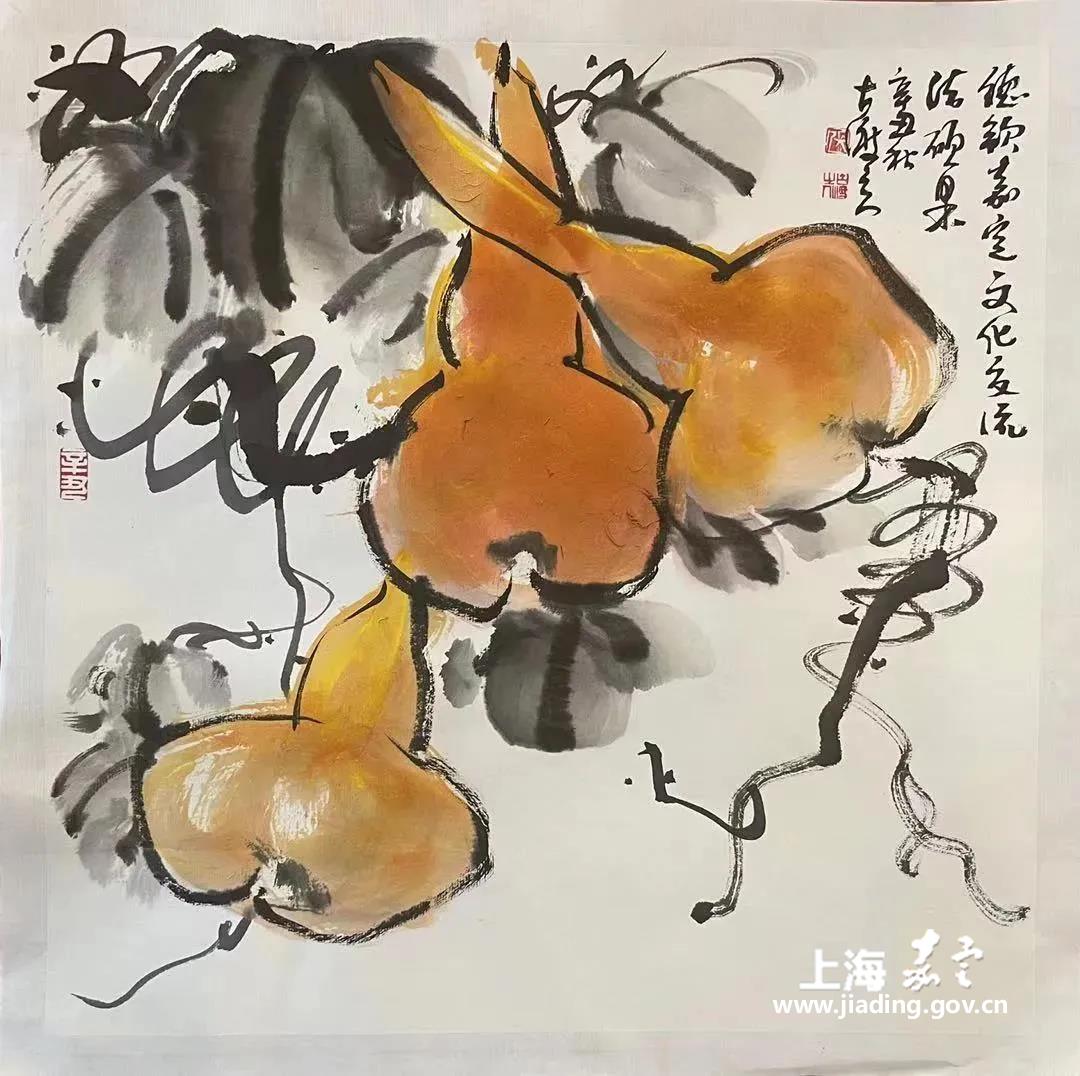 德钦嘉定文化交流
结硕果
辛丑秋
辛丑
上海 嘉定
www.jiading.gov.cn